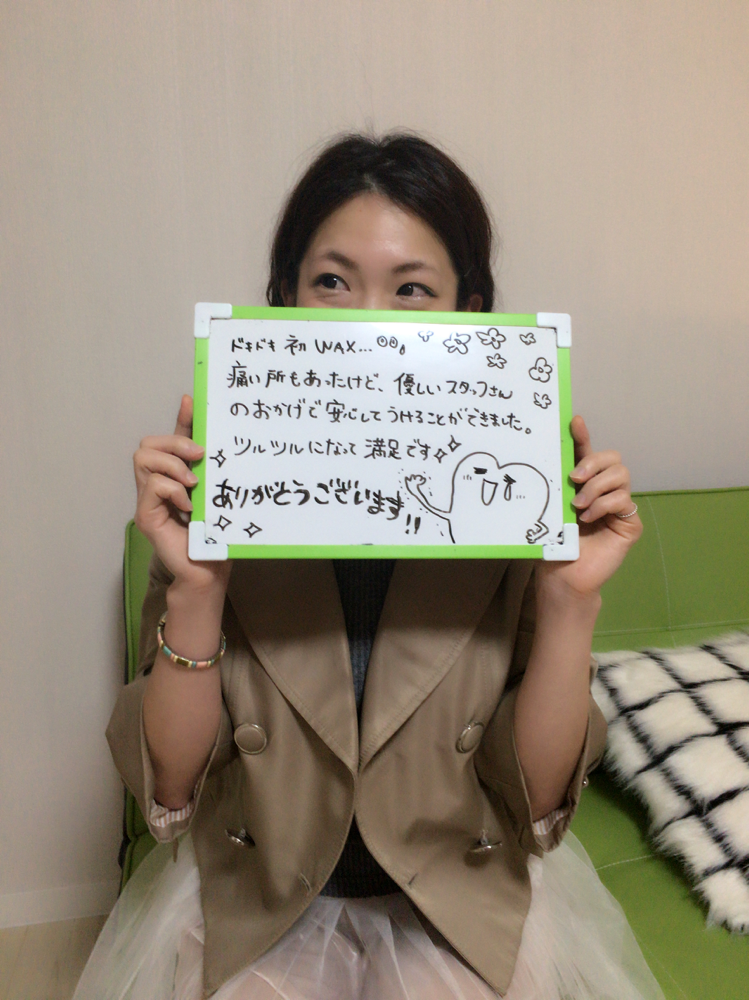 ドキドキ 初 WAX...
痛い所もあったけど、優しいスタッフさん
のおかげで安心してうけることができました。
ツルツルになって満足です
ありがとうございます!!